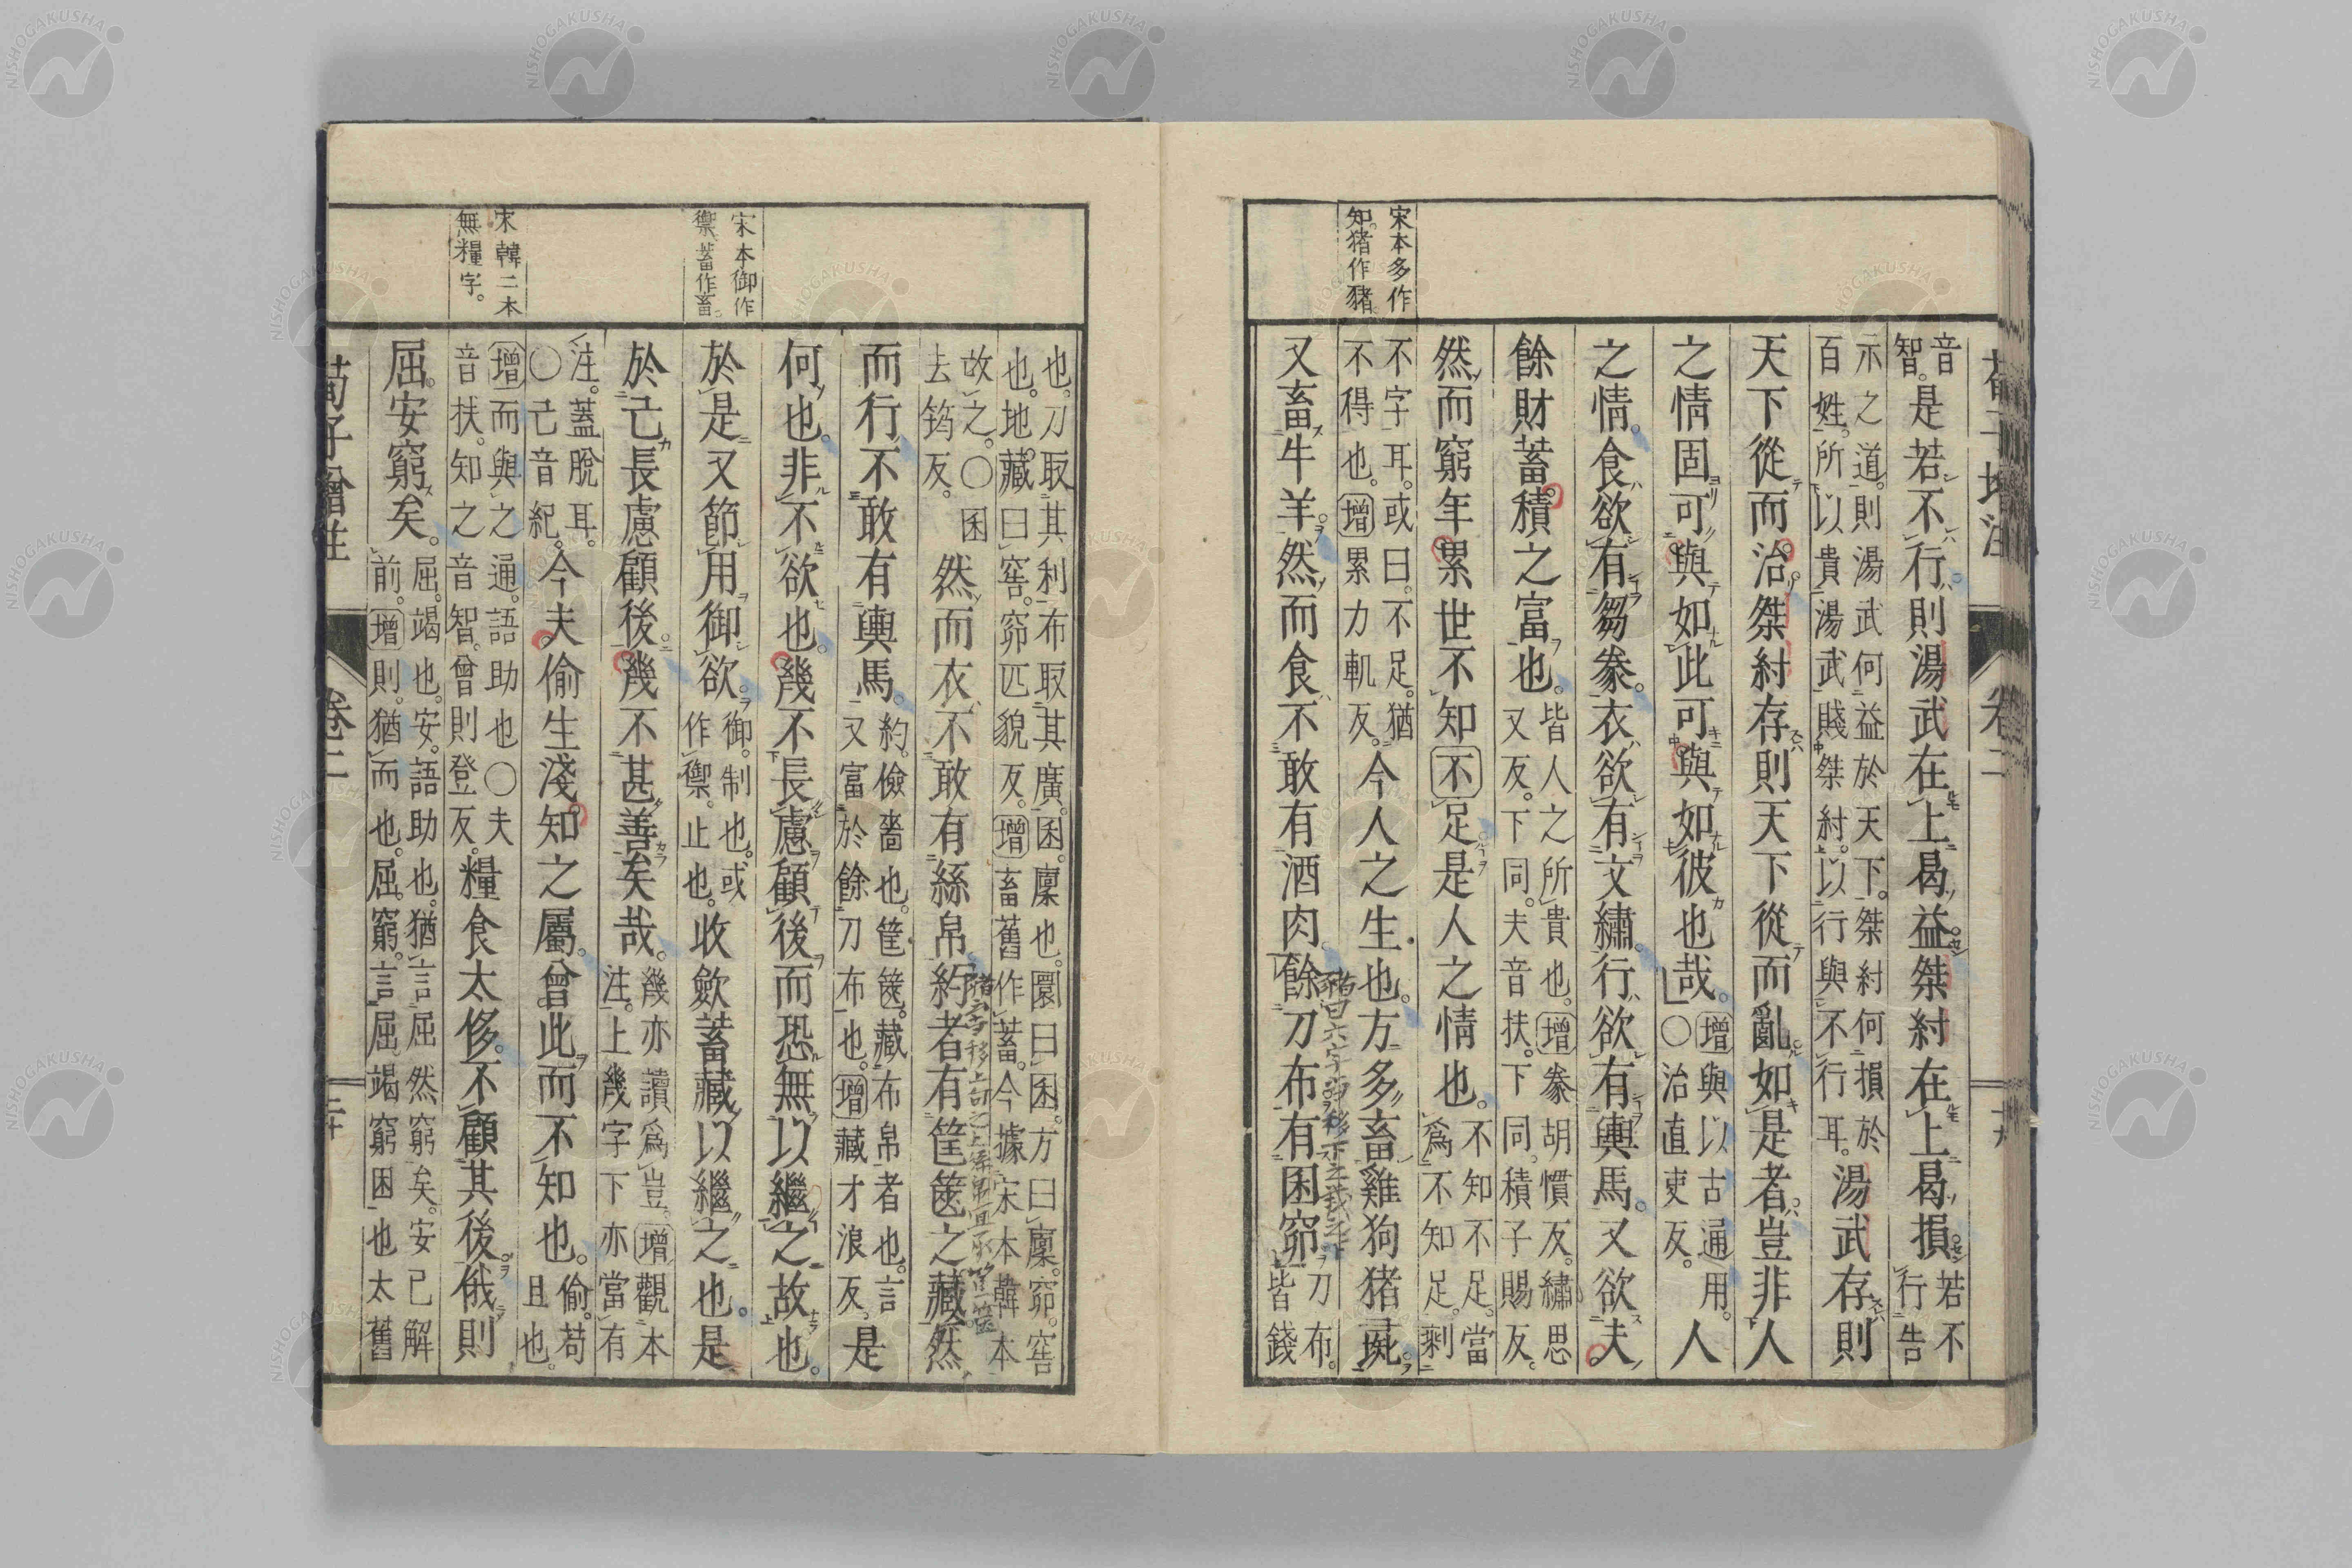 荀子增注
卷二
宋本多作
知猪作豬
音
智。是若不行、則湯武在上曷益、桀紂在上曷損。若不
行告
示之道。則湯武何益於天下。桀紂何損於
百姓。所以貴湯武賤桀紂。以行與不行耳。湯武存則
天下從而治、桀紂存則天下從而亂。如是者、豈非人
之情固可與如此可與如彼也哉。增與以古通用。
〇治直吏反。人
之情。食欲有芻豢。衣欲有文繡。行欲有輿馬。又欲夫
餘財蓄積之富也。皆人之所貴也。增豢胡慣反。繡思
又反。下同。夫音扶。下同。積子賜反。
然而窮年累世不知不足、是人之情也。不知不足。當
爲不知足。剩
不字耳。或曰。不足。猶
不得也。增累力軌反。今人之生也。方多畜雞狗猪彘。
又畜牛羊。然而食不敢有酒肉。餘刀布有囷窌。刀布。
皆錢
也。刀取其利布取其廣。囷。廩也。圜曰囷。方曰廩。窌。窖
也。地藏曰窖。窌匹貌反。增畜舊作蓄。今據宋本韓本
故之。〇囷
去筠反。然而衣不敢有絲帛。約者有筐篋之藏。然
而行不敢有輿馬。約。儉嗇也。筐篋。藏布帛者也。言
又富於餘刀布也。增藏才浪反。是
何也。非不欲也。幾不長慮顧後而恐無以繼之故也。
宋本御作
禦蓄作畜。
於是又節用御欲。御。制也。或
作禦。止也。收歛蓄藏以繼之也。是
於己長慮顧後。幾不甚善矣哉。幾亦讀爲豈。增觀本
注。上幾字下亦當有
注。蓋脫耳。
〇己音紀。今夫偷生淺知之屬。曾此而不知也。偷。苟
且也。
宋韓二本
無糧字。
增而與之通。語助也〇夫
音扶。知之音智。曾則登反。糧食太侈。不顧其後。俄則
屈。安窮矣。屈。竭也。安。語助也。猶言屈然窮矣。安已解
前。增則。猶而也。屈。窮。言屈竭窮困也太舊
荀子增注
卷二
二十